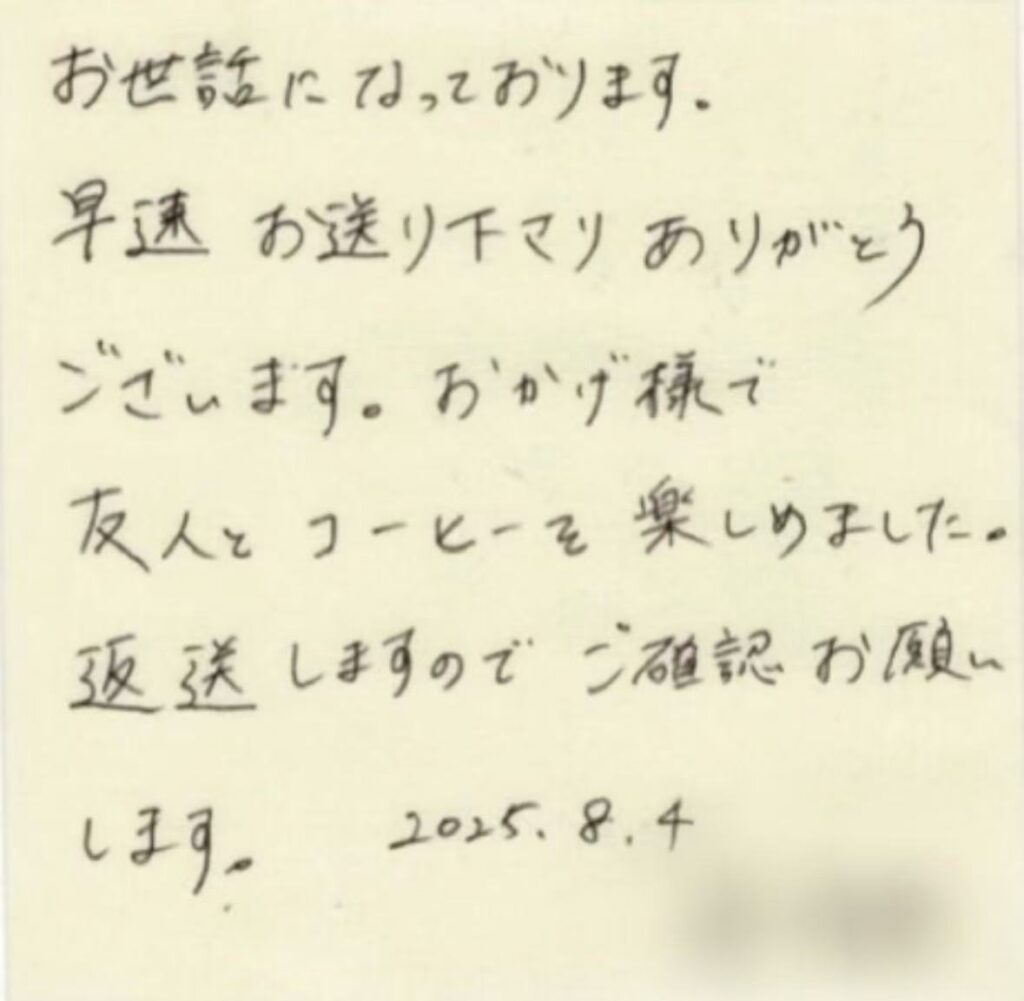 お世話になっております。
早速 お送り下さり ありがとう
ございます。おかげ様で
友人と コーヒーを 楽しめました。
返送しますので ご確認お願い
します。 2025.8.4